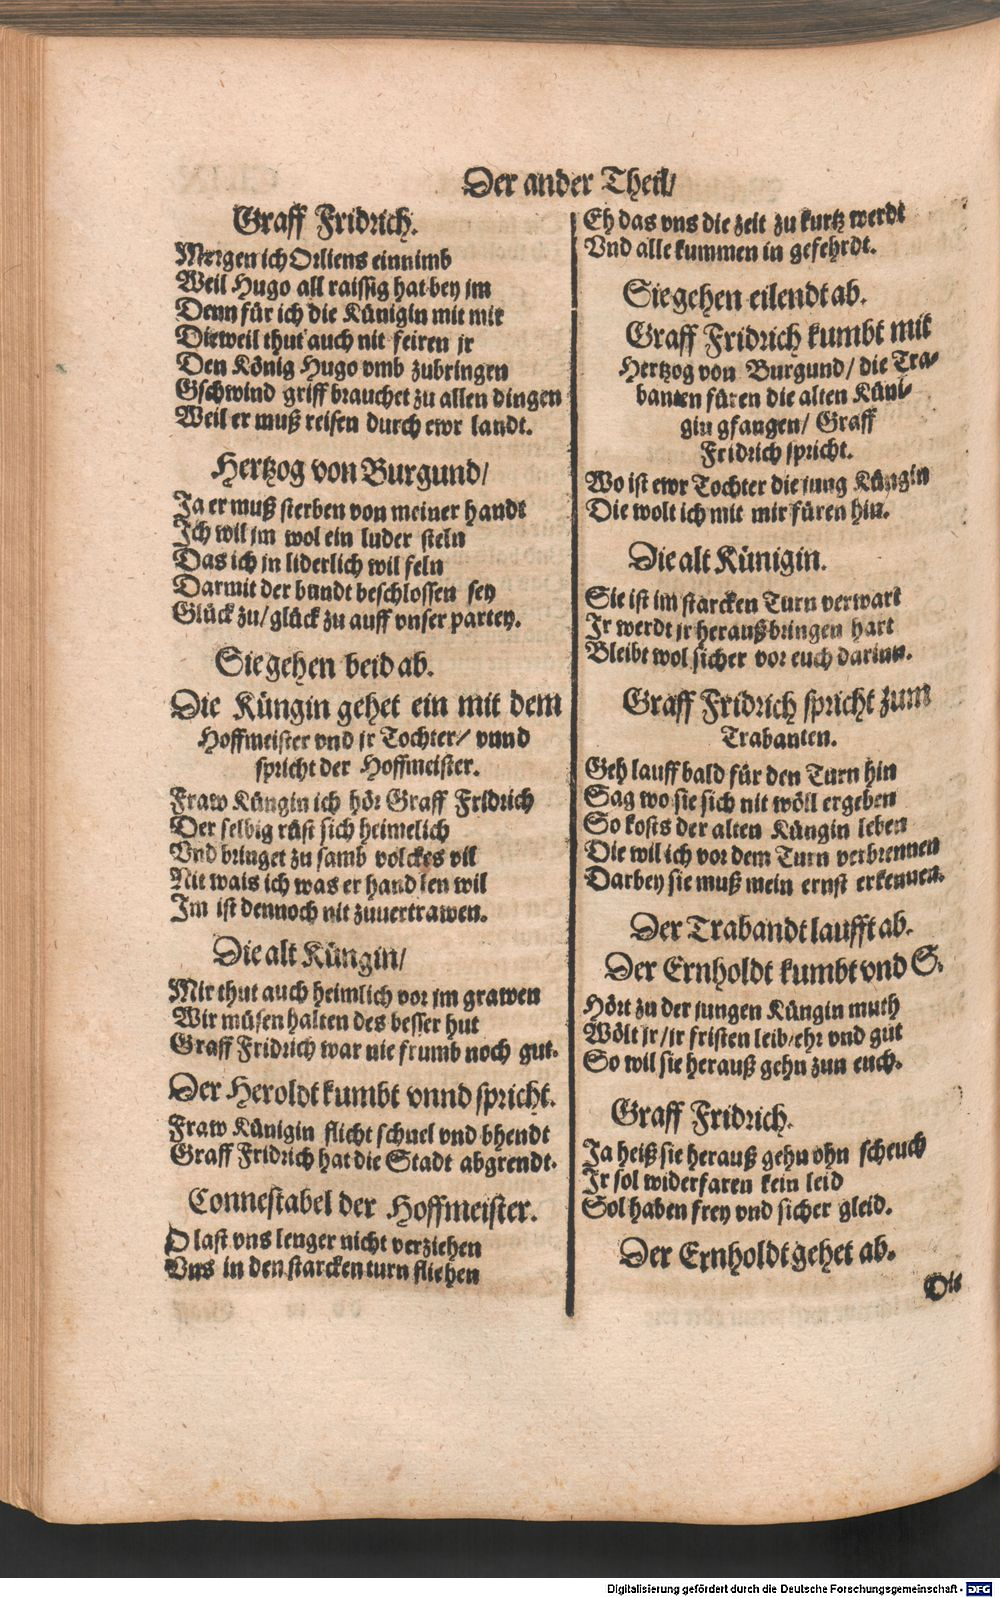 Der ander Theil/
Graff Fridrich.
Morgen ich Orliens einnimb
Weil Hugo all raissig hat bey jm
Denn für ich die Künigin mit mir
Dieweil thut auch nit feiren jr
Den König Hugo vmb zubringen
Gschwind griff brauchet zu allen dingen
Weil er muß reisen durch ewr landt.
Hertzog von Burgund/
Ja er muß sterben von meiner handt
Ich wil jm wol ein luder steln
Das ich jn liderlich wil feln
Darmit der bundt beschlossen sey
Glück zu/glück zu auff vnser partey.
Sie gehen beid ab.
Die Küngin gehet ein mit dem
Hoffmeister vnd jr Tochter/ vnnd
spricht der Hoffmeister.
Fraw Küngin ich hör Graff Fridrich
Der selbig rüst sich heimelich
Vnd bringet zu samb volckes vil
Nit wais ich was er handlen wil
Im ist dennoch nit zuuertrawen.
Die alt Küngin/
Mir thut auch heimlich vor jm grawen
Wir müsen halten des besser hut
Graff Fridrich war nie frumb noch gut.
Der Heroldt kumbt vnnd spricht.
Fraw Künigin flicht schnel vnd bhendt
Graff Fridrich hat die Stadt abgrendt.
Connestabel der Hoffmeister.
O last vns lenger nicht verziehen
Vns in den starcken turn fliehen
Eh das vns die zeit zu kurtz werdt
Vnd alle kummen in gefehrdt.
Sie gehen eilendt ab.
Graff Fridrich kumbt mit
Hertzog von Burgund/ die Tra-
banten füren die alten Küni-
gin gfangen/ Graff
Fridrich spricht.
Wo ist ewr Tochter die jung Küngin
Die wolt ich mit mir füren hin.
Die alt Künigin.
Sie ist im starcken Turn verwart
Jr werdt jr herauß bringen hart
Bleibt wol sicher vor euch darinn.
Graff Fridrich spricht zum
Trabanten.
Geh lauff bald für den Turn hin
Sag wo sie sich nit wöll ergeben
So kosts der alten Küngin leben
Die wil ich vor dem Turn verbrennen
Darbey sie muß mein ernst erkennen.
Der Trabandt laufft ab.
Der Ernholdt kumbt vnd S.
Hört zu der jungen Küngin muth
Wölt jr/jr fristen leib/ehr vnd gut
So wil sie herauß gehn zun euch.
Graff Fridrich.
Ja heiß sie herauß gehn ohn scheuch
Jr sol widerfaren kein leid
Sol haben frey vnd sicher gleid.
Der Ernholdt gehet ab.
Die
Digitalisierung gefördert durch die Deutsche Forschungsgemeinschaft - DFG